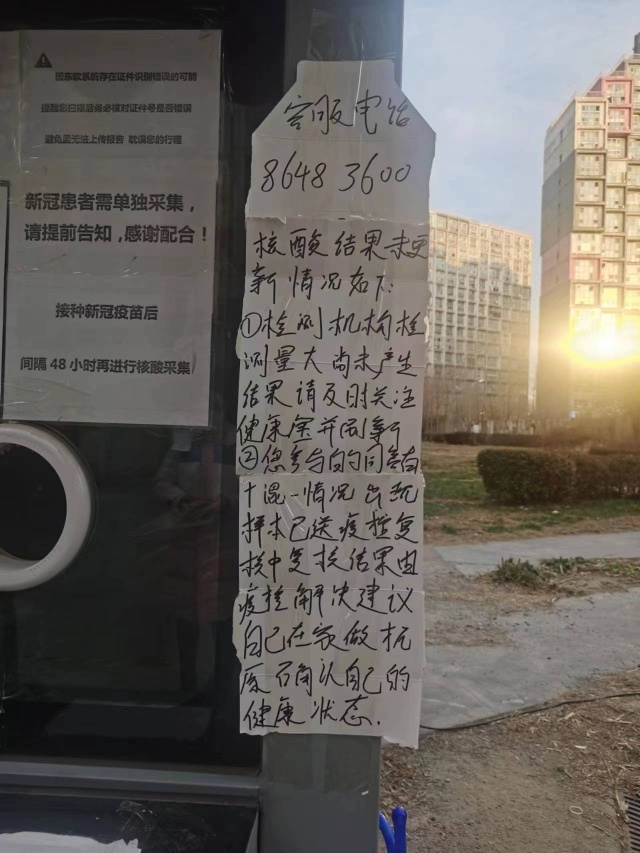 因东软系统存在证件识别错误的可能
提醒您扫描后务必核对证件号是否错误
避免因无法上传报告 耽误您的行程
新冠患者需单独采集，
请提前告知，感谢配合！
接种新冠疫苗后
间隔 48 小时再进行核酸采集
客服电话
8648 3600
核酸结果未更
新情况如下:
①检测机构检
测量大尚未产生
结果请及时关注
健康宝并刷新
②您参与的
十混一情况出现
样本已送疫控复
核中复核结果由
疫控解决建议
自己在家做抗
原确认自己的
健康状态.